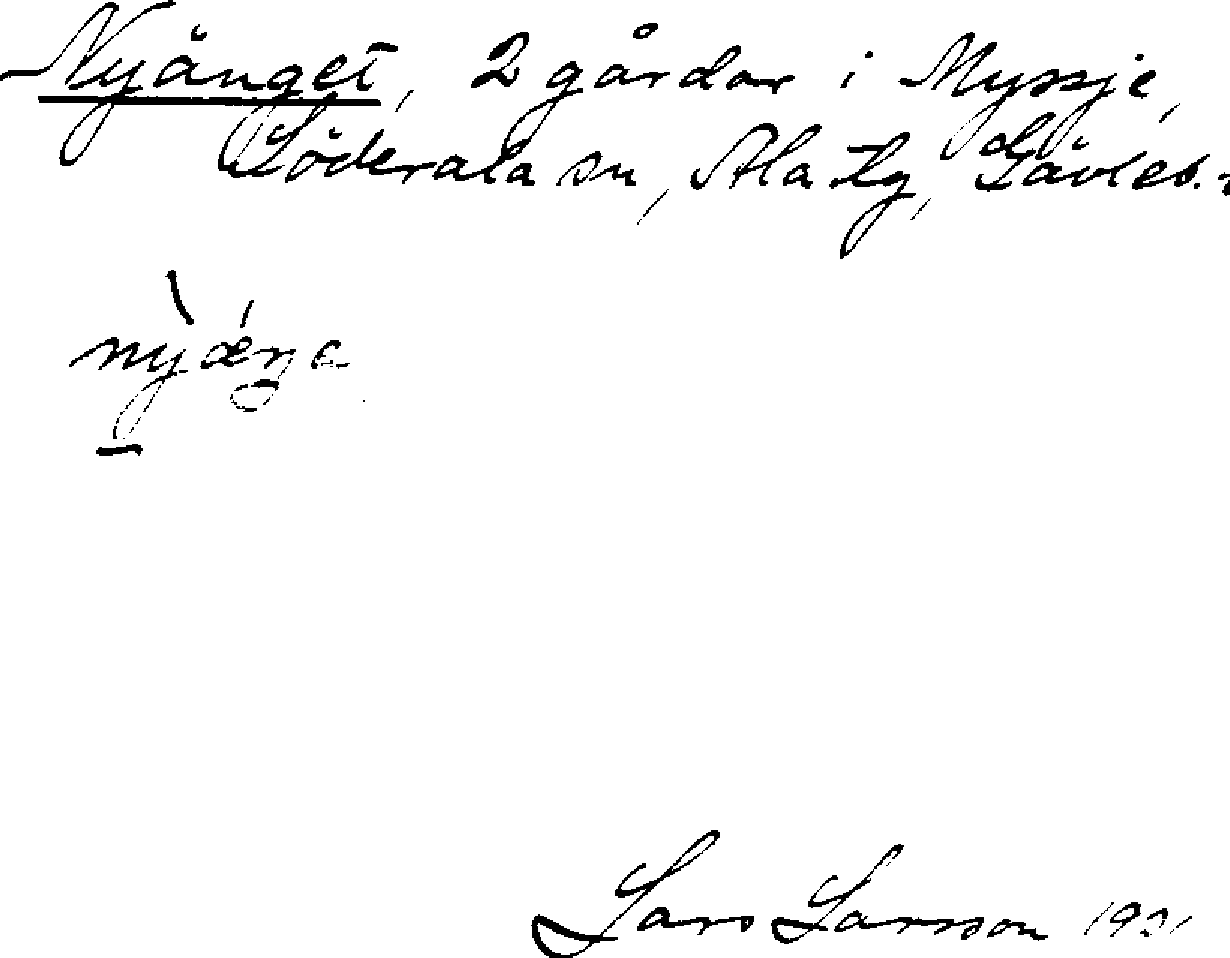 Nyänget, 2 gårdar i Myssje,
Söderala sn, Ala tlg, Gävleb. l
nỳǽŋe
Lars Larsson